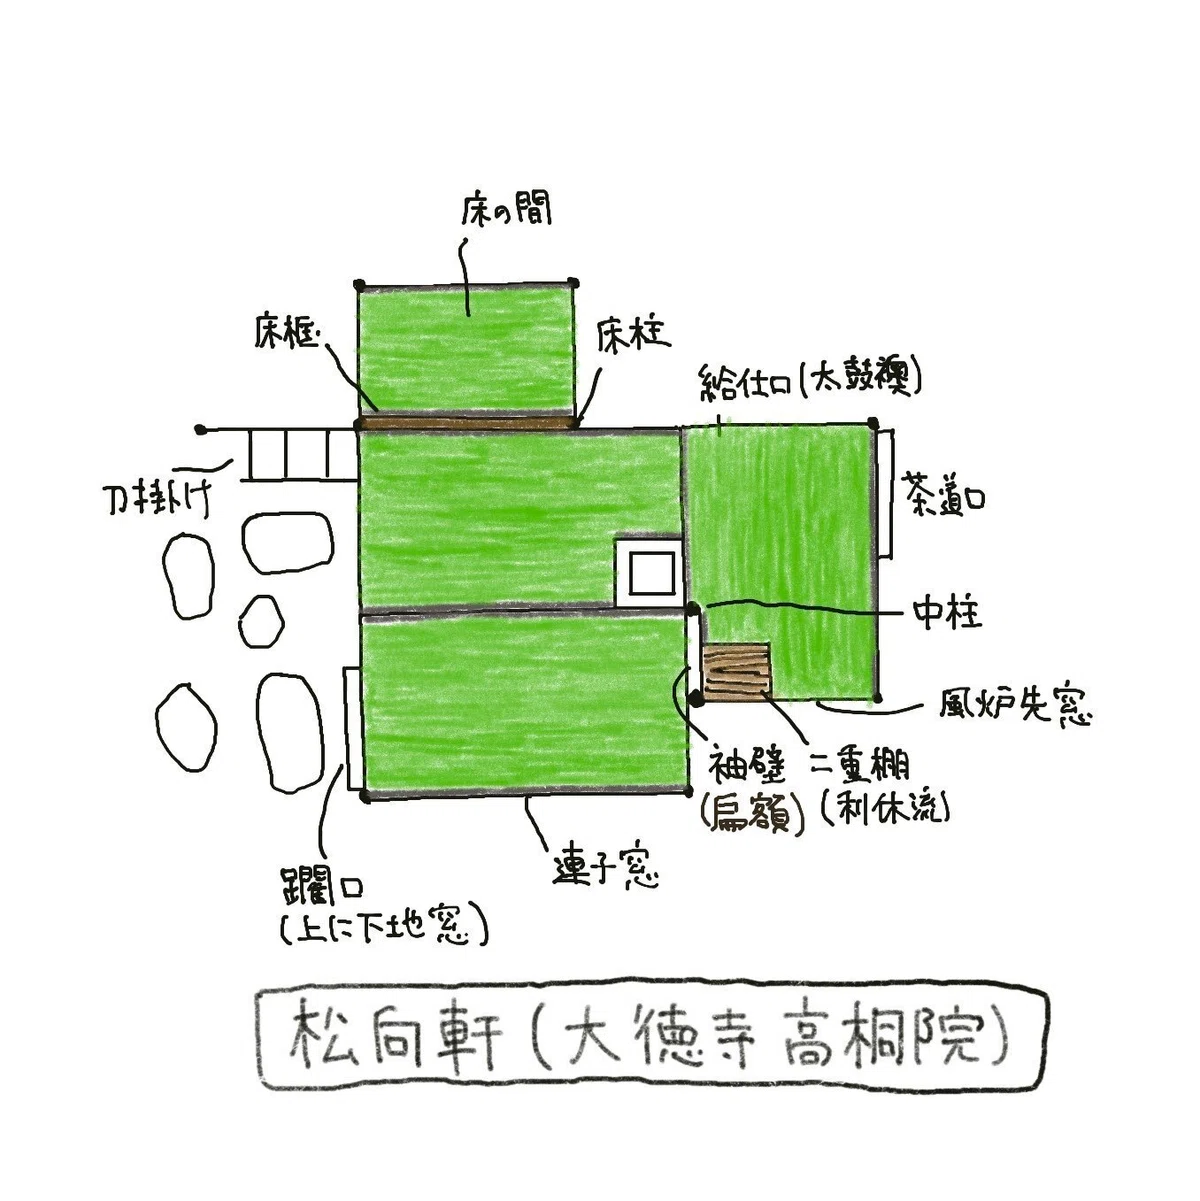 床の間
床框
床柱
給仕口(太鼓襖)
刀掛け
茶道口
中柱
風炉先窓
袖壁
(扁額)
二重棚
(利休流)
連子窓
躙口
(上に下地窓)
松向軒(大徳寺高桐院)